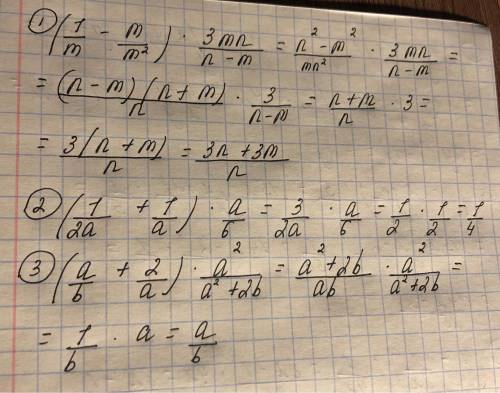 ① (1/m − m/m²) · 3mn/(n−m) = (n²−m²)/(mn²) · 3mn/(n−m) =
= (n−m)(n+m)/n · 3/(n−m) = (n+m)/n · 3 =
= 3(n+m)/n = (3n+3m)/n
② (1/2a + 1/a) · a/6 = 3/2a · a/6 = 1/2 · 1/2 = 1/4
③ (a/b + 2/a) · a²/(a²+2b) = (a²+2b)/(ab) · a²/(a²+2b) =
= 1/b · a = a/b